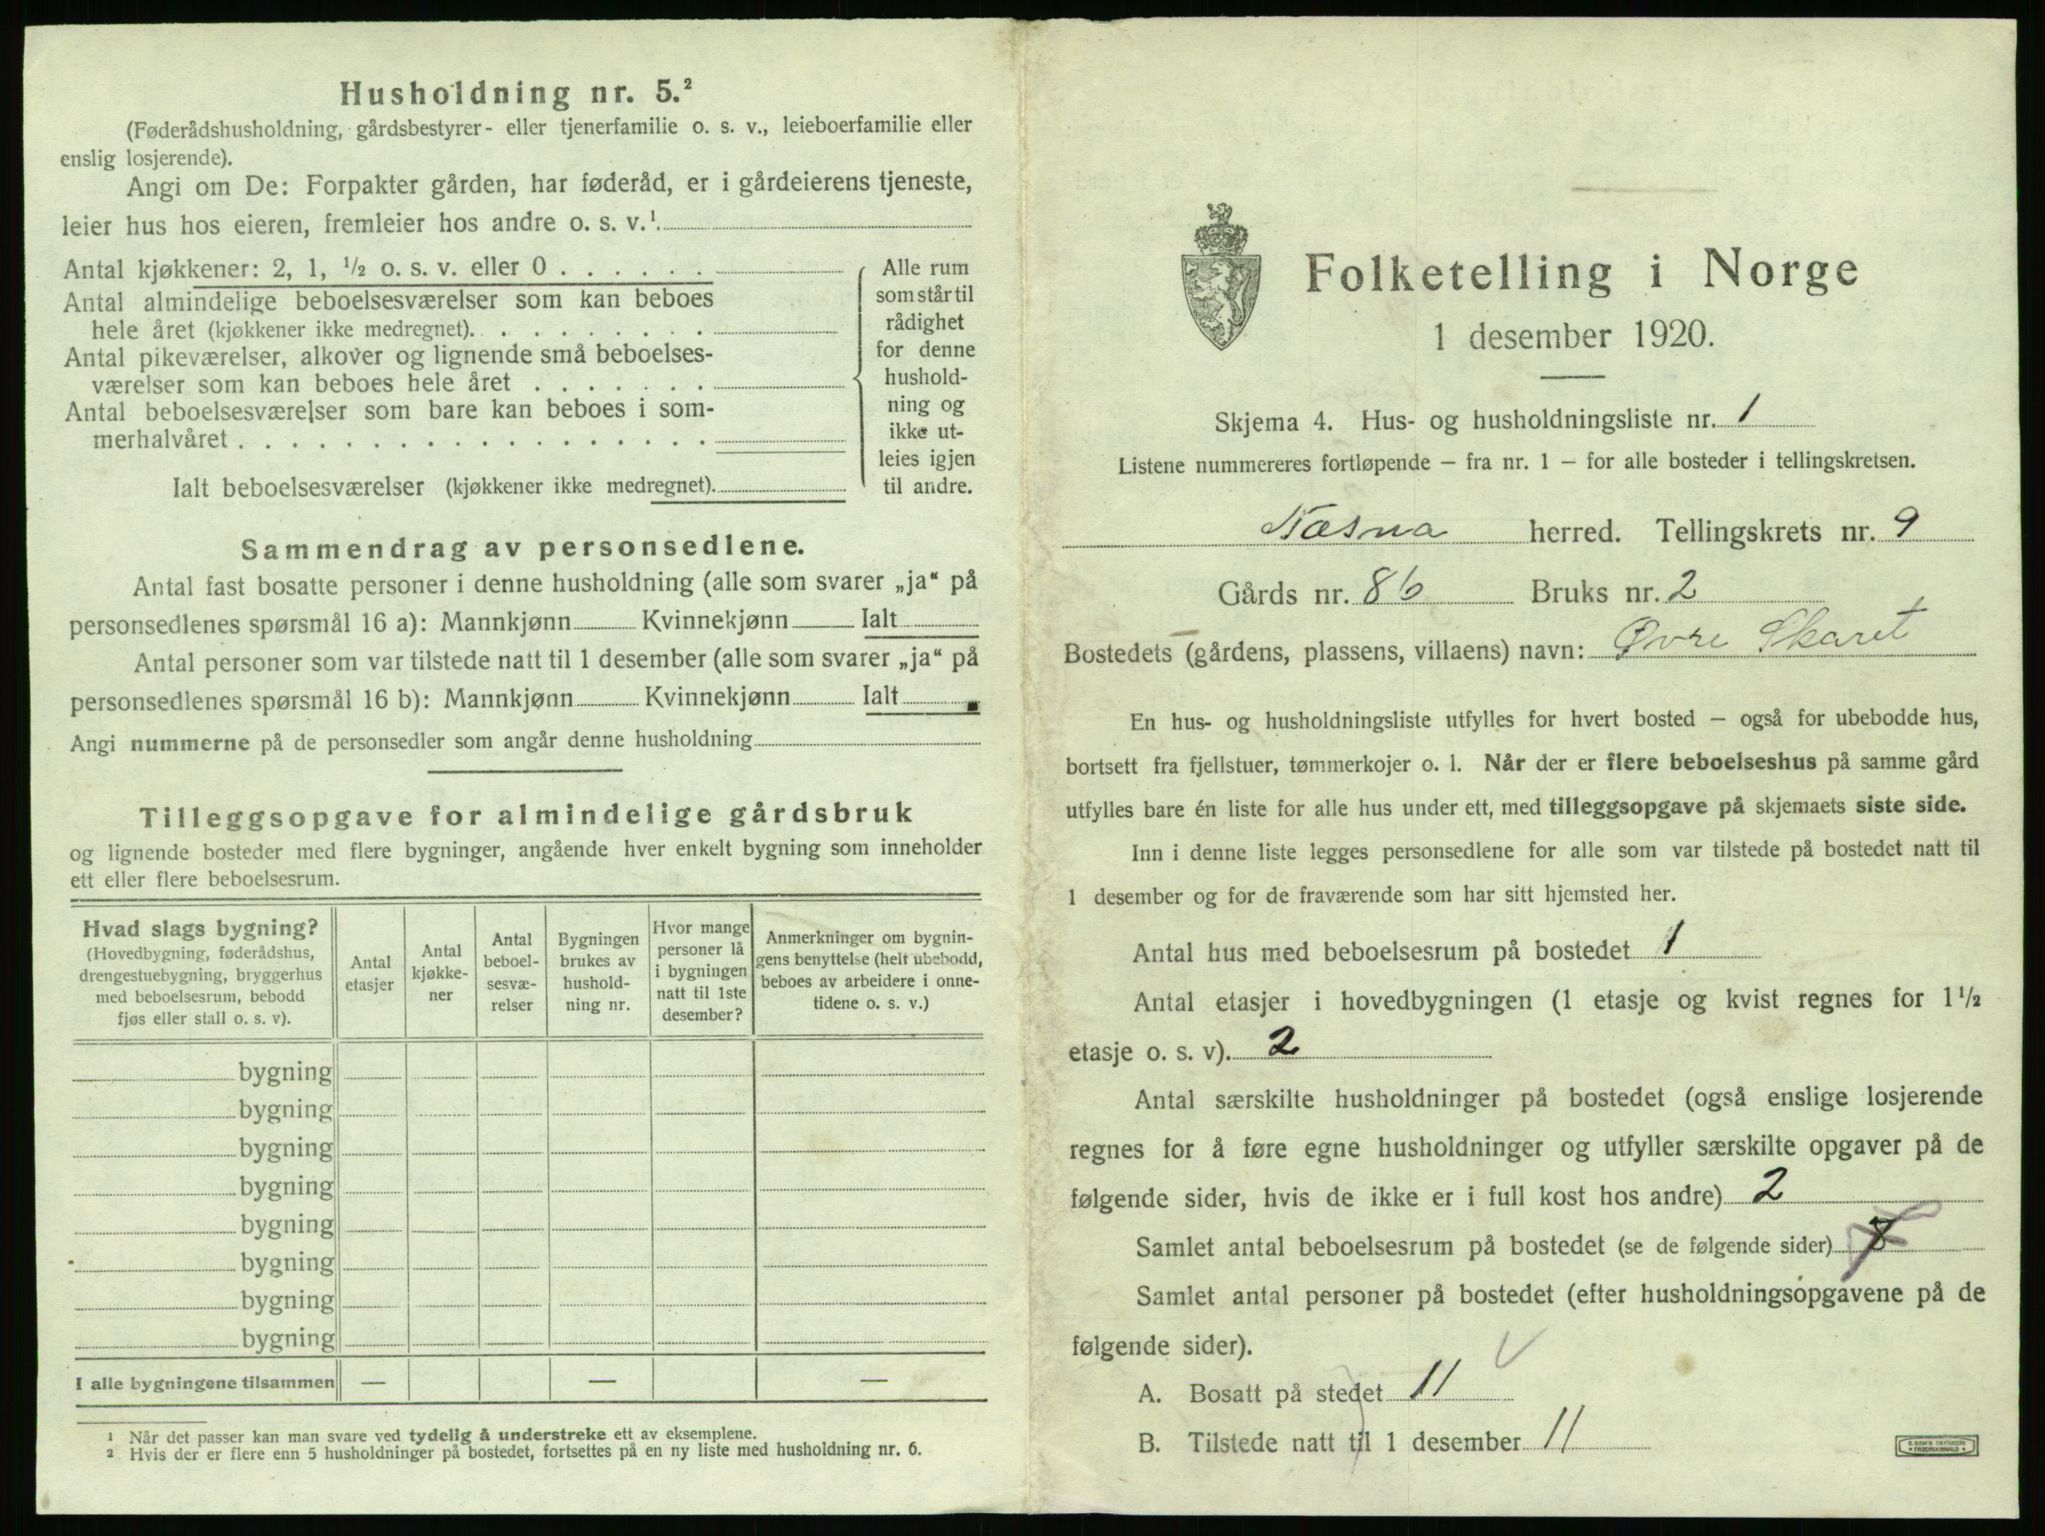 Husholdning nr. 5.²
(Føderådshusholdning, gårdsbestyrer- eller tjenerfamilie o. s. v., leieboerfamilie eller
enslig losjerende).
Angi om De: Forpakter gården, har føderåd, er i gårdeierens tjeneste,
leier hus hos eieren, fremleier hos andre o. s. v.¹.
Antal kjøkkener: 2, 1, ½ o. s. v. eller 0 . . . . . .
Antal almindelige beboelsesværelser som kan beboes
hele året (kjøkkener ikke medregnet). . . . . . . . .
Antal pikeværelser, alkover og lignende små beboelses-
værelser som kan beboes hele året . . . . . . .
Antal beboelsesværelser som bare kan beboes i som-
merhalvåret . . . . . . . . . . . . . . . . . .
Ialt beboelsesværelser (kjøkkener ikke medregnet).
Alle rum
som står til
rådighet
for denne
hushold-
ning og
ikke ut-
leies igjen
til andre.
Sammendrag av personsedlene.
Antal fast bosatte personer i denne husholdning (alle som svarer „ja“ på
personsedlenes spørsmål 16 a): Mannkjønn Kvinnekjønn Ialt
Antal personer som var tilstede natt til 1 desember (alle som svarer „ja“ på
personsedlenes spørsmål 16 b): Mannkjønn Kvinnekjønn Ialt
Angi nummerne på de personsedler som angår denne husholdning
Tilleggsopgave for almindelige gårdsbruk
og lignende bosteder med flere bygninger, angående hver enkelt bygning som inneholder
ett eller flere beboelsesrum.
Hvad slags bygning?
(Hovedbygning, føderådshus,
drengestuebygning, bryggerhus
med beboelsesrum, bebodd
fjøs eller stall o. s. v).
Antal
etasjer
Antal
kjøkke-
ner
Antal
beboel-
sesvæ-
relser
Bygningen
brukes av
hushold-
ning nr.
Hvor mange
personer lå
i bygningen
natt til 1ste
desember?
Anmerkninger om bygnin-
gens benyttelse (helt ubebodd,
beboes av arbeidere i onne-
tidene o. s. v.)
bygning
bygning
bygning
bygning
bygning
bygning
bygning
bygning
I alle bygningene tilsammen — — —
¹ Når det passer kan man svare ved tydelig å understreke ett av eksemplene.
² Hvis der er flere enn 5 husholdninger på bostedet, fortsettes på en ny liste med husholdning nr. 6.
Folketelling i Norge
1 desember 1920.
Skjema 4. Hus- og husholdningsliste nr. 1
Listene nummereres fortløpende – fra nr. 1 – for alle bosteder i tellingskretsen.
Næsna herred. Tellingskrets nr. 9
Gårds nr. 86 Bruks nr. 2
Bostedets (gårdens, plassens, villaens) navn: Øvre Skaret
En hus- og husholdningsliste utfylles for hvert bosted – også for ubebodde hus,
bortsett fra fjellstuer, tømmerkojer o. l. Når der er flere beboelseshus på samme gård
utfylles bare én liste for alle hus under ett, med tilleggsopgave på skjemaets siste side.
Inn i denne liste legges personsedlene for alle som var tilstede på bostedet natt til
1 desember og for de fraværende som har sitt hjemsted her.
Antal hus med beboelsesrum på bostedet 1
Antal etasjer i hovedbygningen (1 etasje og kvist regnes for 1½
etasje o. s. v). 2
Antal særskilte husholdninger på bostedet (også enslige losjerende
regnes for å føre egne husholdninger og utfyller særskilte opgaver på de
følgende sider, hvis de ikke er i full kost hos andre) 2
Samlet antal beboelsesrum på bostedet (se de følgende sider) 8 7
Samlet antal personer på bostedet (efter husholdningsopgavene på de
følgende sider).
A. Bosatt på stedet 11
B. Tilstede natt til 1 desember 11